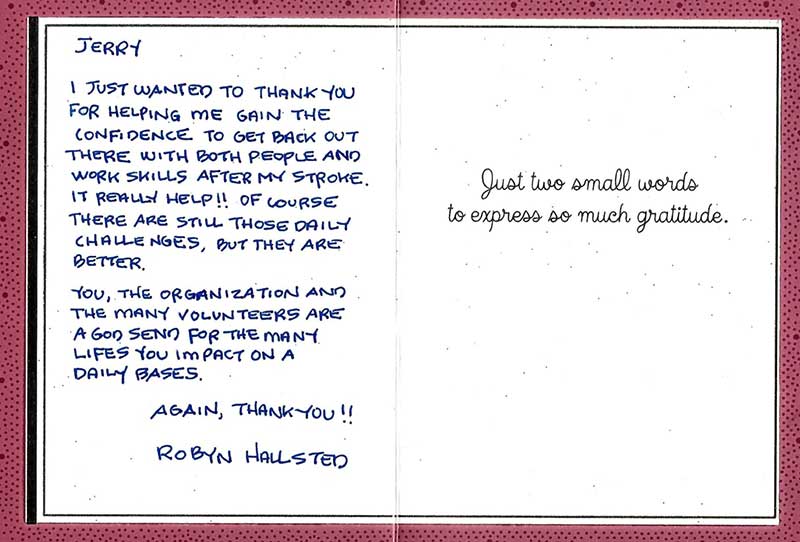 JERRY
I JUST WANTED TO THANK YOU
FOR HELPING ME GAIN THE
CONFIDENCE TO GET BACK OUT
THERE WITH BOTH PEOPLE AND
WORK SKILLS AFTER MY STROKE.
IT REALLY HELP!! OF COURSE
THERE ARE STILL THOSE DAILY
CHALLENGES, BUT THEY ARE
BETTER.
YOU, THE ORGANIZATION AND
THE MANY VOLUNTEERS ARE
A GOD SEND FOR THE MANY
LIFES YOU IMPACT ON A
DAILY BASES.
AGAIN, THANK YOU!!
ROBYN HALLSTED
Just two small words
to express so much gratitude.